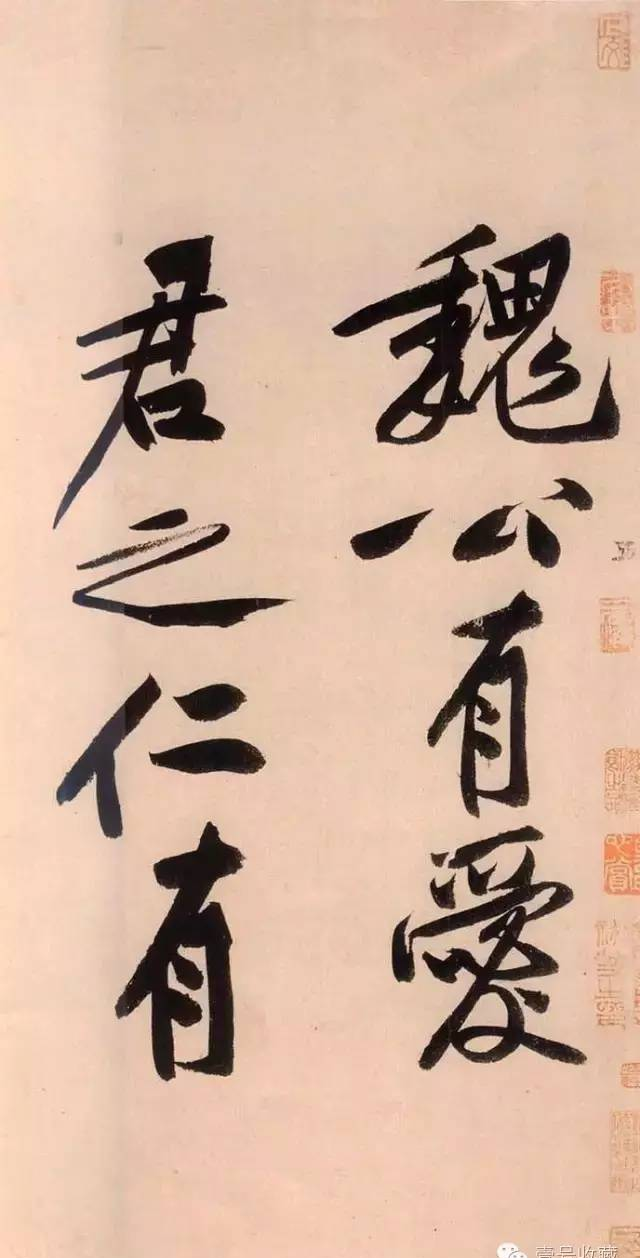 魏公有愛
君之仁有
壹号收藏